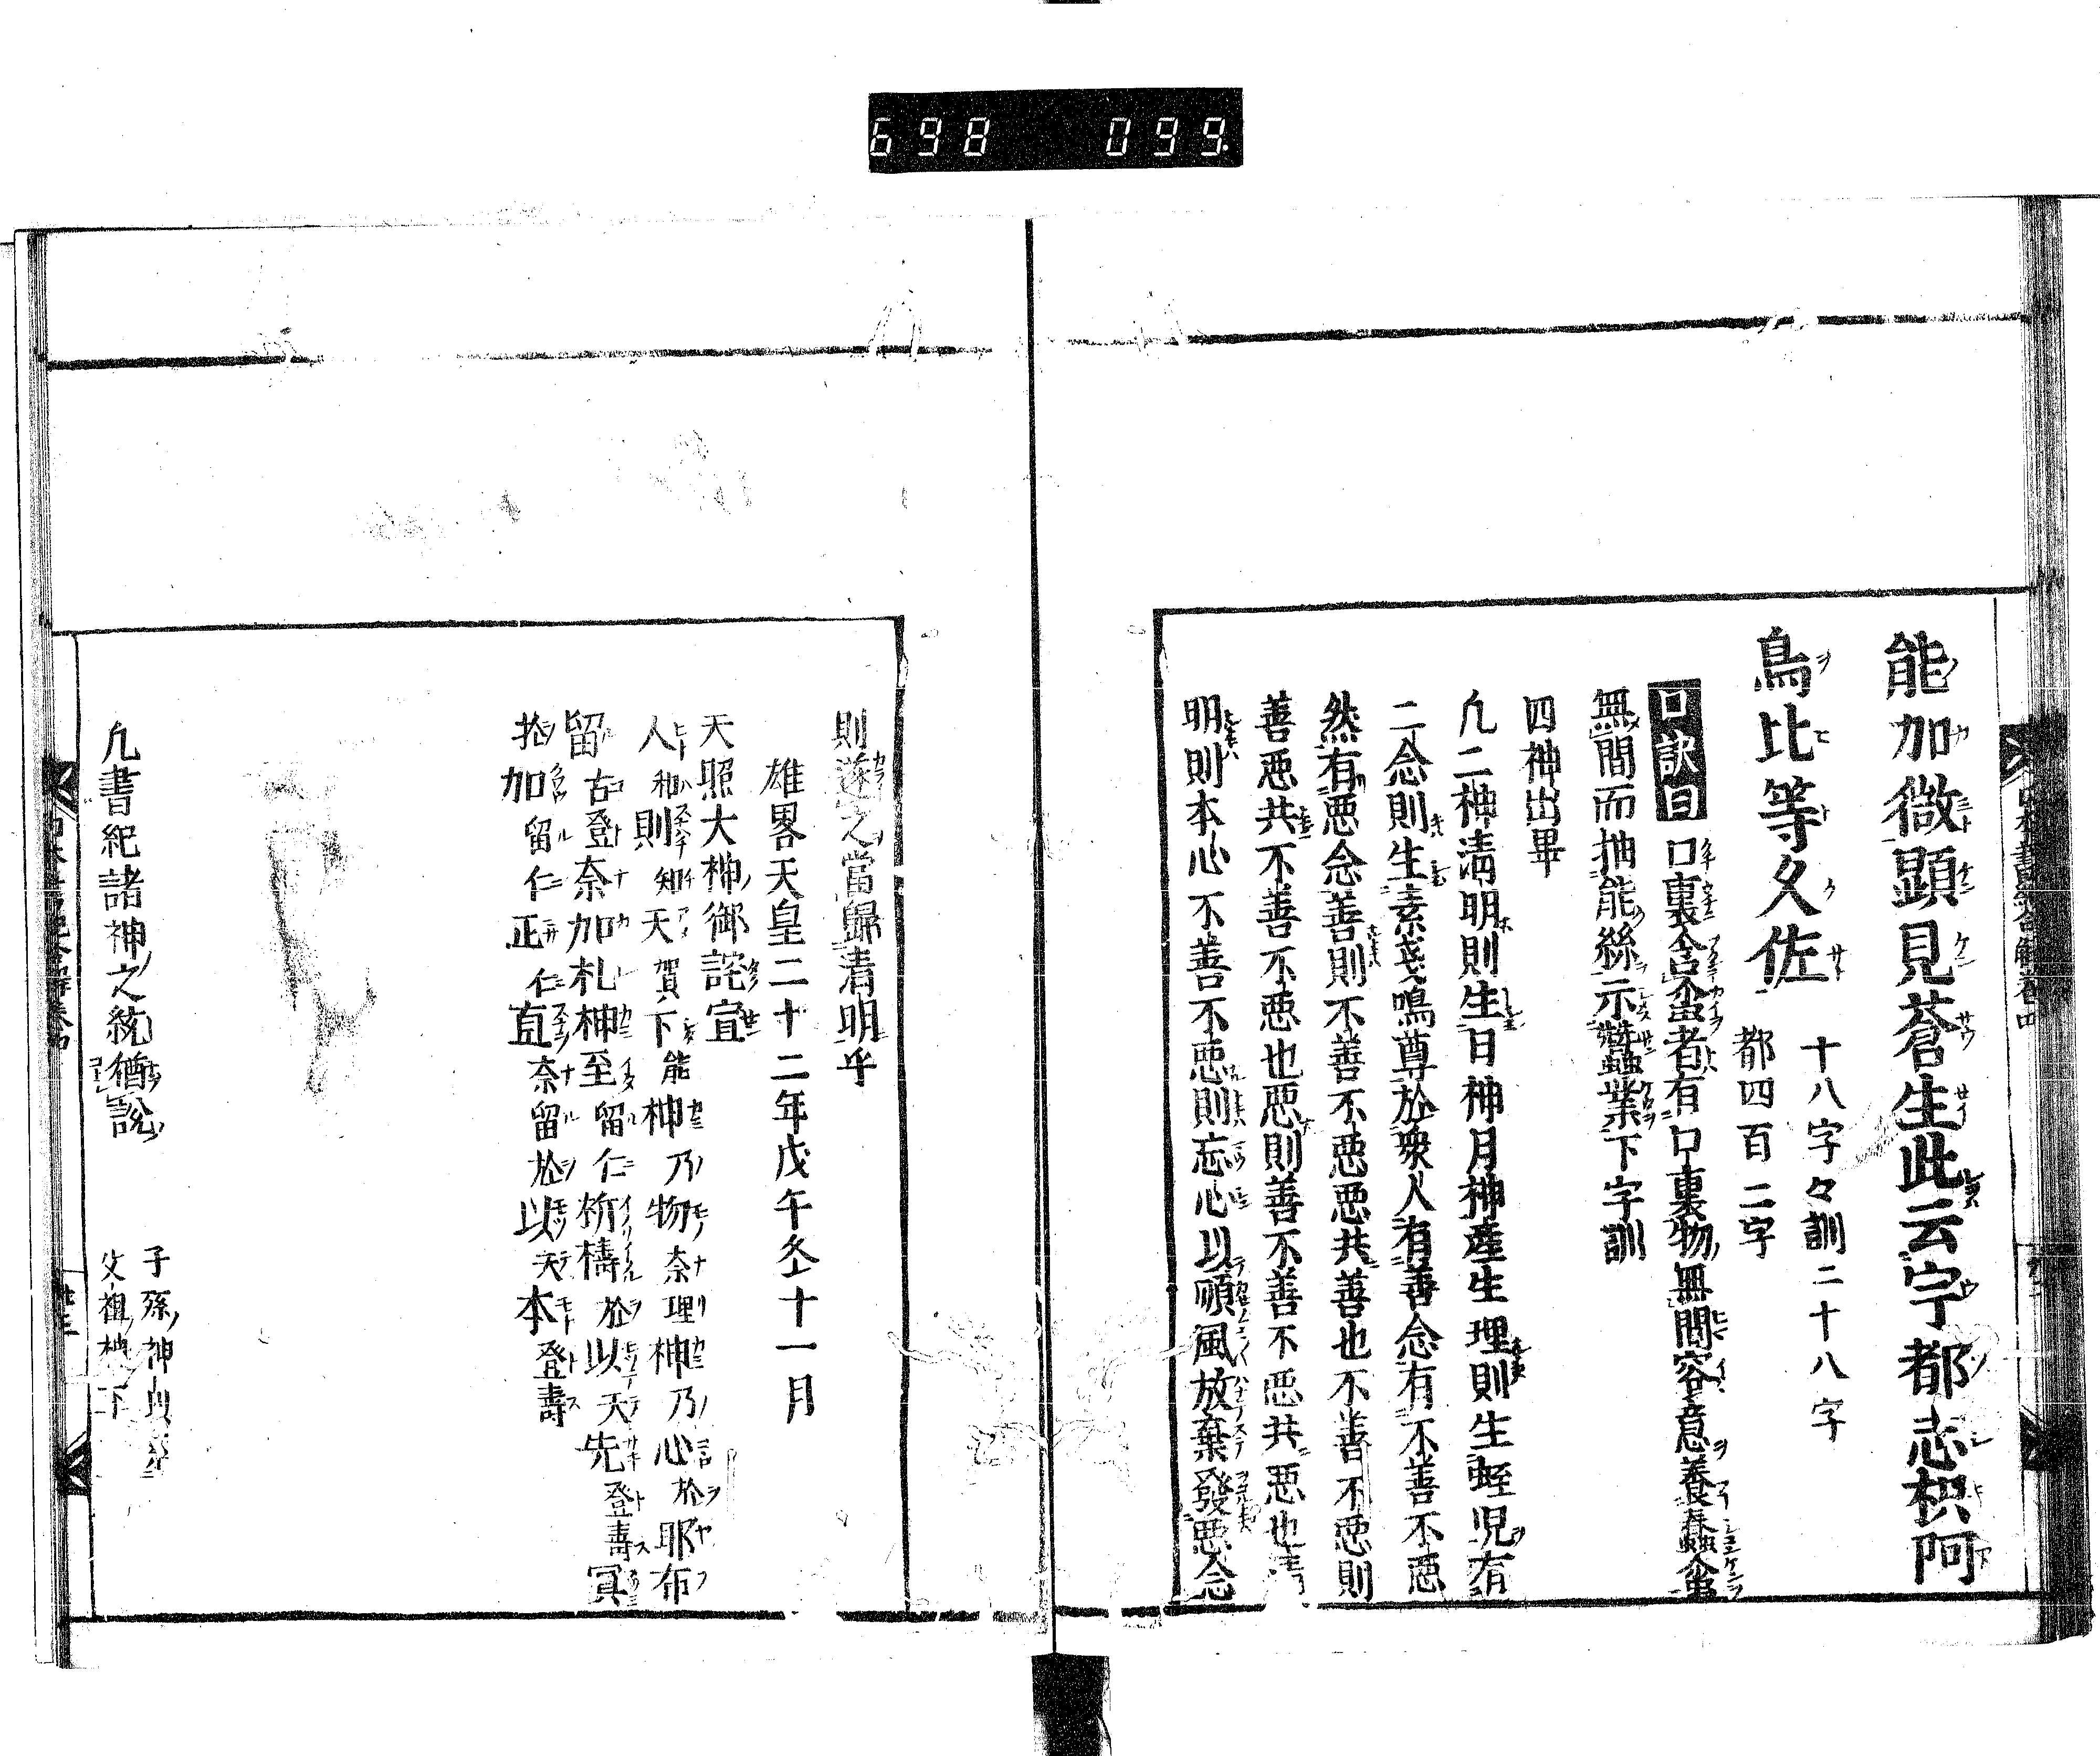 698 099
能加微顕見蒼生此云宇都志枳阿
鳥比等久佐
十八字々訓二十八字
都四百二字
口訣曰 口裏含蚕者有口裏物無間容意養蠶蚕
無間而抽能絲示蠶業下字訓
四神出畢
凢二神清明則生日神月神産生理則生蛭児有
二念則生素戔鳴尊於衆人有善念有不善不惡
然有惡念善則不善不惡惡共善也不善不惡則
善惡共不善不惡也惡則善不善不惡共惡也
明則本心不善不惡則忘心以順風放棄發惡念
則遂之當歸清明乎
雄畧天皇二十二年戊午冬十一月
天照大神御詫宣
人和則知天賀下能神乃物奈理神乃心於耶布
留古登奈加札神至留仁祈禱於以天先登壽冥
於加留仁正仁直奈留於以天本登壽
凢書紀諸神之統猶訟
子孫神以
父祖神下